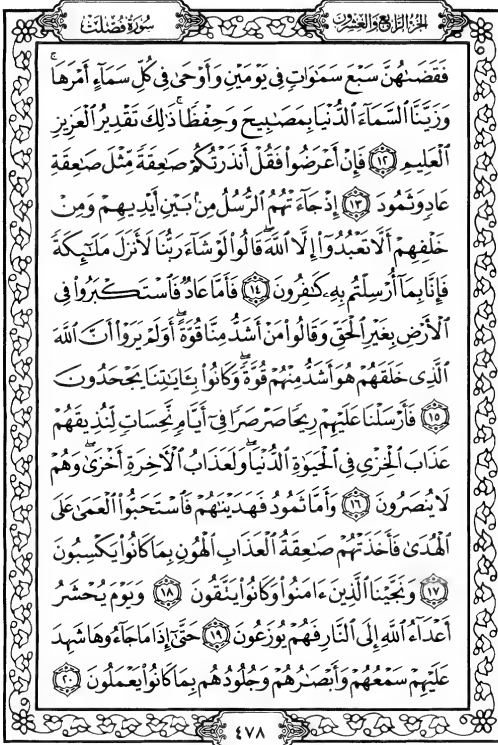 سُورَةُ فُصِّلَتْ
الجُزْءُ الرَّابِعُ وَالعِشْرُونَ
فَقَضَىٰهُنَّ سَبْعَ سَمَٰوَاتٍ فِي يَوْمَيْنِ وَأَوْحَىٰ فِي كُلِّ سَمَآءٍ أَمْرَهَا ۚ
وَزَيَّنَّا ٱلسَّمَآءَ ٱلدُّنْيَا بِمَصَٰبِيحَ وَحِفْظًا ۚ ذَٰلِكَ تَقْدِيرُ ٱلْعَزِيزِ
ٱلْعَلِيمِ ﴿١٢﴾ فَإِنْ أَعْرَضُوا۟ فَقُلْ أَنذَرْتُكُمْ صَٰعِقَةً مِّثْلَ صَٰعِقَةِ
عَادٍ وَثَمُودَ ﴿١٣﴾ إِذْ جَآءَتْهُمُ ٱلرُّسُلُ مِنۢ بَيْنِ أَيْدِيهِمْ وَمِنْ
خَلْفِهِمْ أَلَّا تَعْبُدُوٓا۟ إِلَّا ٱللَّهَ ۖ قَالُوا۟ لَوْ شَآءَ رَبُّنَا لَأَنزَلَ مَلَٰٓئِكَةً
فَإِنَّا بِمَآ أُرْسِلْتُم بِهِۦ كَٰفِرُونَ ﴿١٤﴾ فَأَمَّا عَادٌ فَٱسْتَكْبَرُوا۟ فِي
ٱلْأَرْضِ بِغَيْرِ ٱلْحَقِّ وَقَالُوا۟ مَنْ أَشَدُّ مِنَّا قُوَّةً ۖ أَوَلَمْ يَرَوْا۟ أَنَّ ٱللَّهَ
ٱلَّذِي خَلَقَهُمْ هُوَ أَشَدُّ مِنْهُمْ قُوَّةً ۖ وَكَانُوا۟ بِـَٔايَٰتِنَا يَجْحَدُونَ
﴿١٥﴾ فَأَرْسَلْنَا عَلَيْهِمْ رِيحًا صَرْصَرًا فِىٓ أَيَّامٍ نَّحِسَاتٍ لِّنُذِيقَهُمْ
عَذَابَ ٱلْخِزْيِ فِي ٱلْحَيَوٰةِ ٱلدُّنْيَا ۖ وَلَعَذَابُ ٱلْأَخِرَةِ أَخْزَىٰ ۖ وَهُمْ
لَا يُنصَرُونَ ﴿١٦﴾ وَأَمَّا ثَمُودُ فَهَدَيْنَٰهُمْ فَٱسْتَحَبُّوا۟ ٱلْعَمَىٰ عَلَى
ٱلْهُدَىٰ فَأَخَذَتْهُمْ صَٰعِقَةُ ٱلْعَذَابِ ٱلْهُونِ بِمَا كَانُوا۟ يَكْسِبُونَ
﴿١٧﴾ وَنَجَّيْنَا ٱلَّذِينَ ءَامَنُوا۟ وَكَانُوا۟ يَتَّقُونَ ﴿١٨﴾ وَيَوْمَ يُحْشَرُ
أَعْدَآءُ ٱللَّهِ إِلَى ٱلنَّارِ فَهُمْ يُوزَعُونَ ﴿١٩﴾ حَتَّىٰٓ إِذَا مَا جَآءُوهَا شَهِدَ
عَلَيْهِمْ سَمْعُهُمْ وَأَبْصَٰرُهُمْ وَجُلُودُهُم بِمَا كَانُوا۟ يَعْمَلُونَ ﴿٢٠﴾
٤٧٨